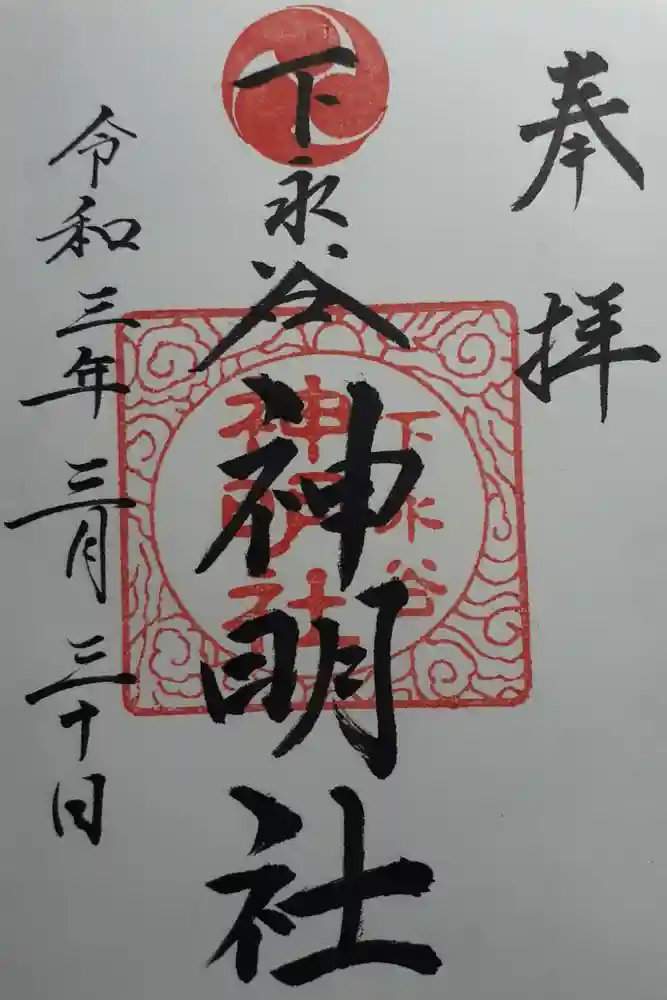 奉拝
下永谷
神明社
下永谷
神明社
令和三年三月三十日